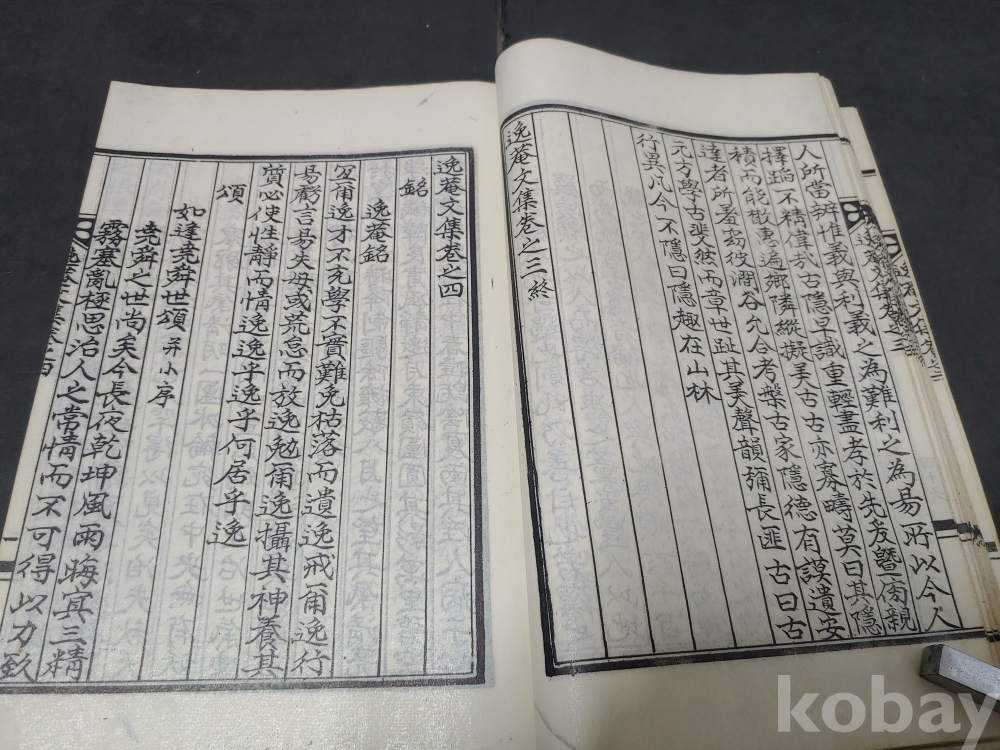 人所當辨惟義與利義之為難利之為易所以今人
擇蹈不精偉哉古隱早識重輕盡孝於先爰曁兩親
積而能散惠遍鄉隣縱擬美古古亦寡疇莫曰其隱
達者所羞蒭彼澗谷允合考槃古家隱德有謨遺安
元方學古斐然而章世趾其美聲韻彌長匪古曰古
行異凡今不隱曰隱趣在山林
逸菴文集卷之三終
逸菴文集卷之四
銘
逸菴銘
爾逸才不充學不貫難免枯落而遺逸戒爾逸行
易虧言易失毋或荒怠而放逸勉爾逸攝其神養其
質心使性靜而情逸逸乎逸乎何居乎逸
頌
如逢堯舜世頌 并小序
堯舜之世尚矣今長夜乾坤風雨晦冥三精
霧塞亂極思治人之常情而不可得以力致
kobay